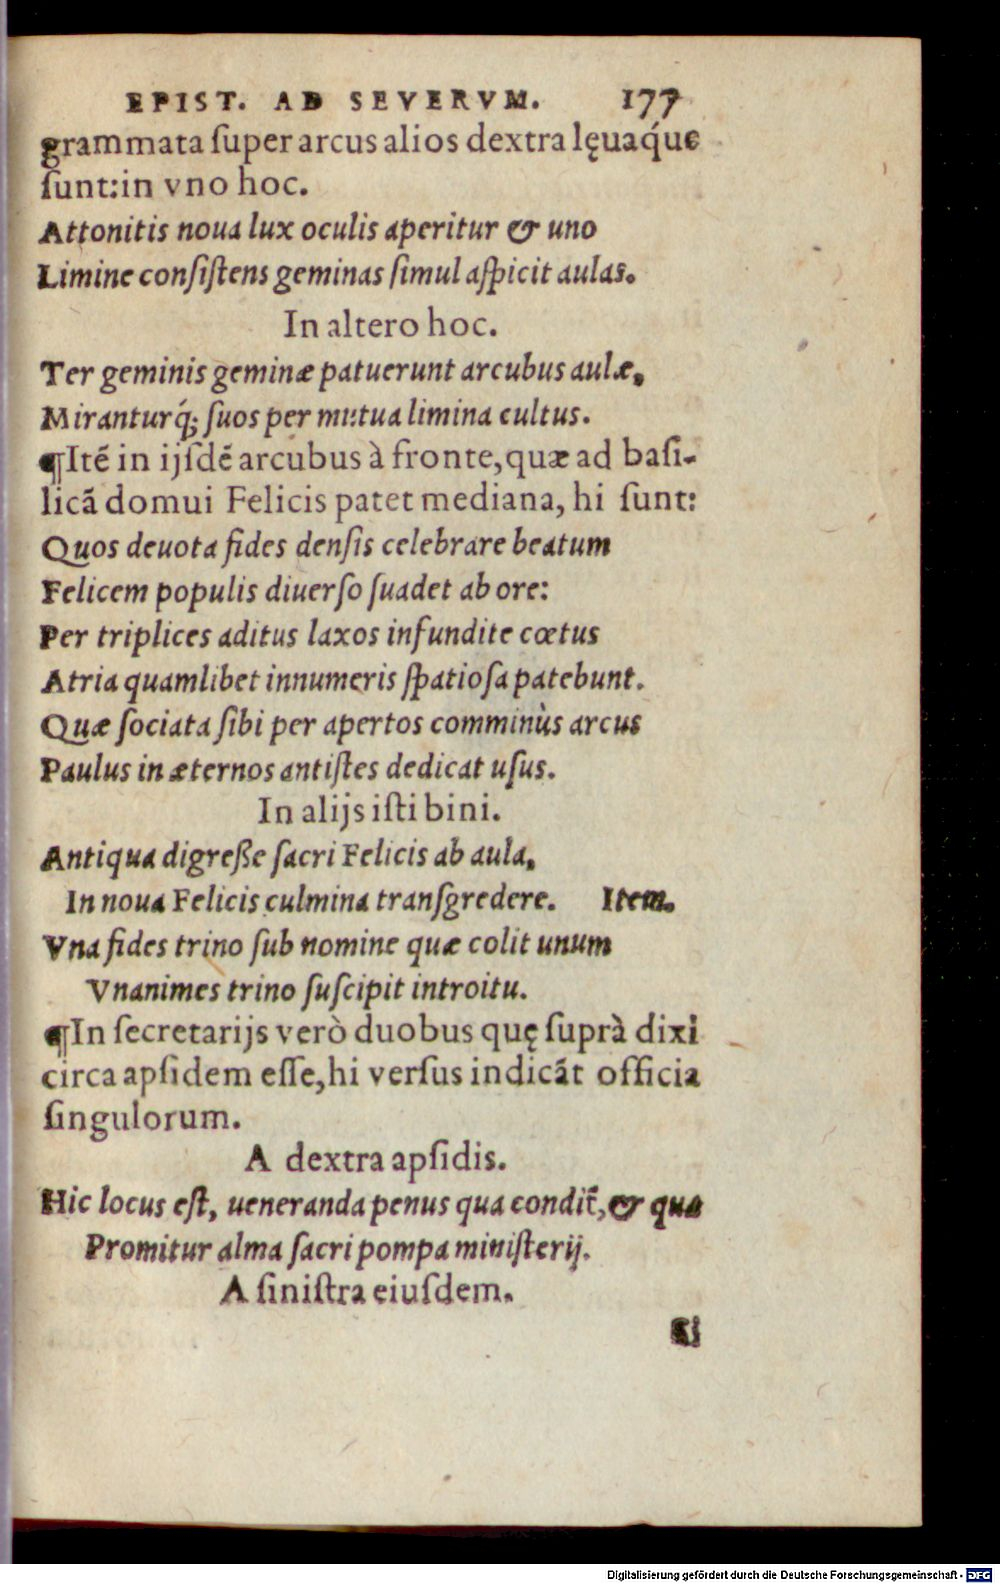 EPIST. AD SEVERVM. 177
grammata ſuper arcus alios dextra lęuaq́ue
ſunt:in vno hoc.
Attonitis noua lux oculis aperitur & uno
Limine conſiſtens geminas ſimul aſpicit aulas.
In altero hoc.
Ter geminis geminæ patuerunt arcubus aulæ,
Miranturq́; ſuos per mutua limina cultus.
¶Itẽ in ijſdẽ arcubus à fronte,quæ ad baſi-
licã domui Felicis patet mediana, hi ſunt:
Quos deuota fides denſis celebrare beatum
Felicem populis diuerſo ſuadet ab ore:
Per triplices aditus laxos infundite cœtus
Atria quamlibet innumeris ſpatioſa patebunt.
Quæ ſociata ſibi per apertos comminùs arcus
Paulus in æternos antiſtes dedicat uſus.
In alijs iſti bini.
Antiqua digreſſe ſacri Felicis ab aula,
In noua Felicis culmina tranſgredere. Item.
Vna fides trino ſub nomine quæ colit unum
Vnanimes trino ſuſcipit introitu.
¶In ſecretarijs verò duobus quę ſuprà dixi
circa apſidem eſſe,hi verſus indicãt officia
ſingulorum.
A dextra apſidis.
Hic locus eſt, ueneranda penus qua condit̃,& qua
Promitur alma ſacri pompa miniſterij.
A ſiniſtra eiuſdem.
Si
Digitalisierung gefördert durch die Deutsche Forschungsgemeinschaft - DFG